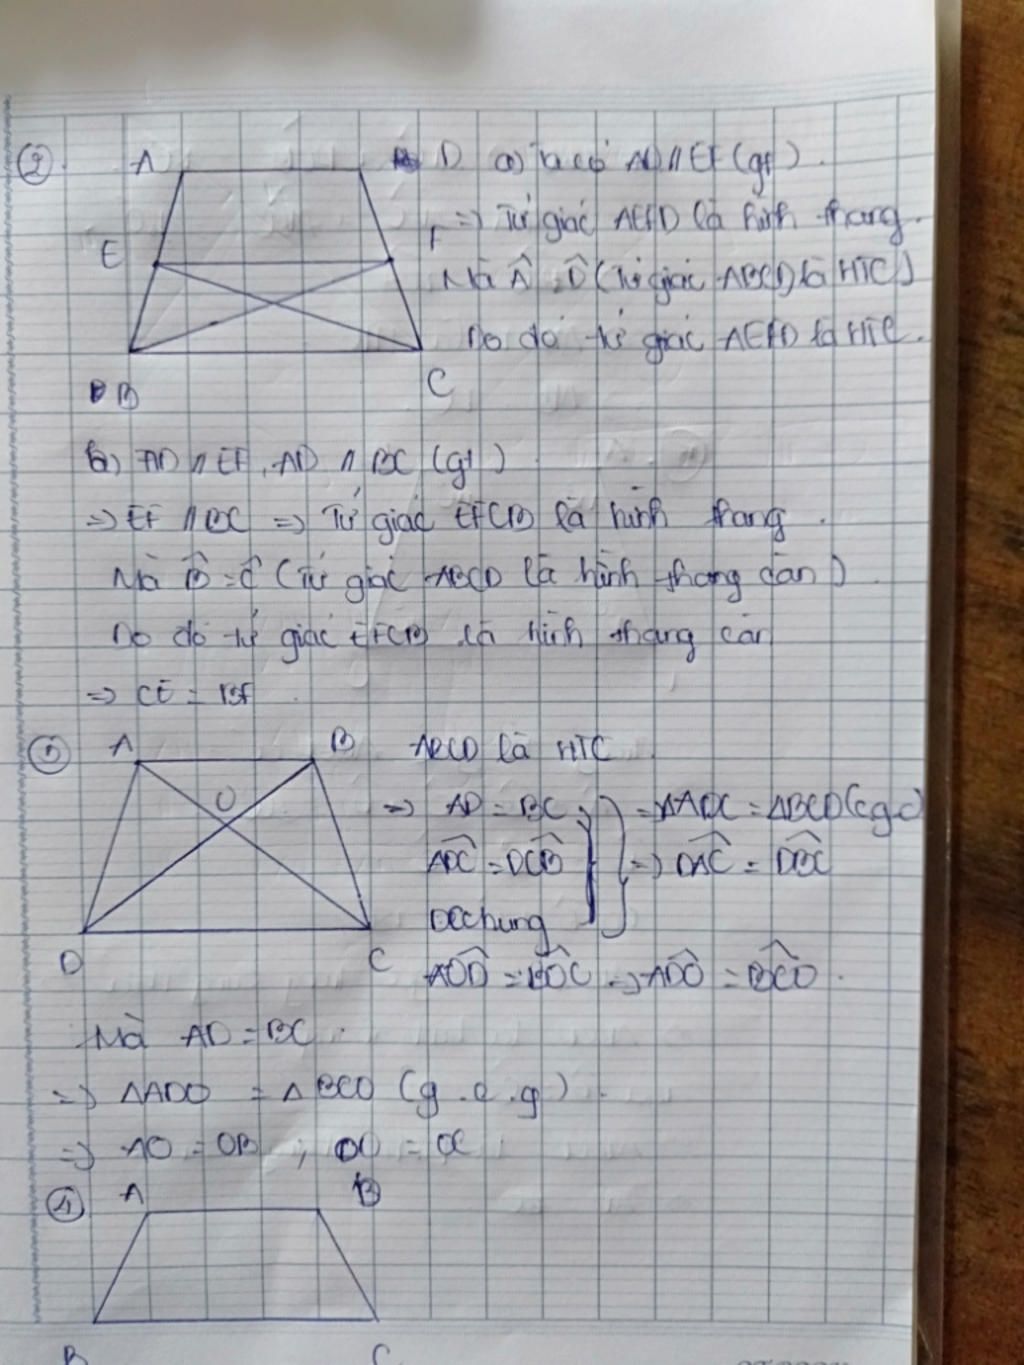 ②
A
D
a) Ta có AD // EF (gt).
E
F
=> Tứ giác AEFD là hình thang.
Mà Â = D̂ (Tứ giác ABCD là HTC)
Do đó tứ giác AEFD là HTC.
B
C
b) AD // EF, AD // BC (gt)
=> EF // BC => Tứ giác EFCB là hình thang.
Mà B̂ = Ĉ (Tứ giác ABCD là hình thang cân)
Do đó tứ giác EFCB là hình thang cân
=> CE = BF.
③
A
B
ABCD là HTC
O
=> AD = BC; } => ΔADC = ΔBCD (c.g.c)
ADC = DCB => DAC = DBC
DC chung
D
C
AOD = BOC => ADO = BCO.
Mà AD = BC.
=> ΔADO = ΔBCO (g.c.g).
=> AO = OB ; OD = OC
④
A
B
B
C